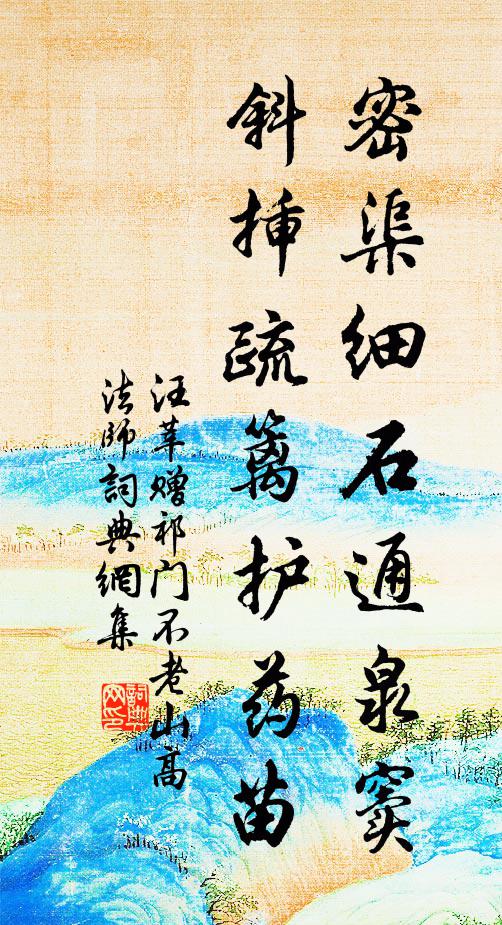 密渠细石通泉窦
斜揷疏篱护药苗
汪莘赠祁门不老山高
法师詞典網集
詞典网印